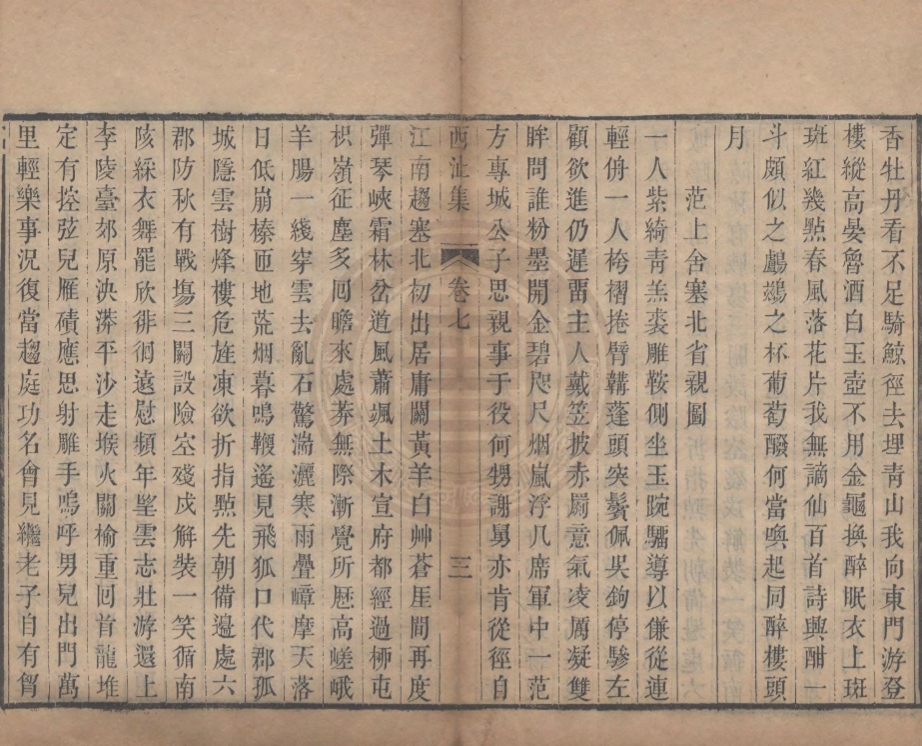 香牡丹看不足騎鯨徑去埋青山我向東門游登
樓縱高晏魯酒白玉壺不用金龜換醉眠衣上斑
斑紅幾點春風落花片我無謫仙百首詩與酣一
斗頗似之鸕鷀之杯葡萄醱何當喚起同醉樓頭
月
范上舍塞北省親圖
一人紫綺青羔裘雕鞍側坐玉踠騮導以傔從連
輕俜一人袴褶捲臂鞲蓬頭突鬢佩吴鉤停驂左
顧欲進仍遲畱主人戴笠披赤罽意氣凌厲凝雙
眸問誰粉墨開金碧咫尺烟嵐浮几席軍中一范
方專城公子思親事于役何甥謝舅亦肯從徑自
西沚集 卷七 三
江南趨塞北初出居庸關黃羊白艸蒼厓間再度
彈琴峽霜林岔道風蕭颯土木宣府都經過桺屯
枳嶺征塵多回瞻來處莽無際漸覺所歷高嵯峨
羊腸一綫穿雲去亂石驚湍灑寒雨疊嶂摩天落
日低崩榛匝地荒烟暮鳴鞭遙見飛狐口代郡孤
城隱雲樹烽樓危旌凍欲折指點先朝備邊處六
郡防秋有戰塲三關設險空殘戍解裝一笑循南
陔綵衣舞罷欣徘徊遠慰頻年望雲志壯游還上
李陵臺郊原泱漭平沙走堠火關榆重回首龍堆
定有控弦兒雁磧應思射雕手嗚呼男兒出門萬
里輕樂事況復當趨庭功名會見繼老子自有胷